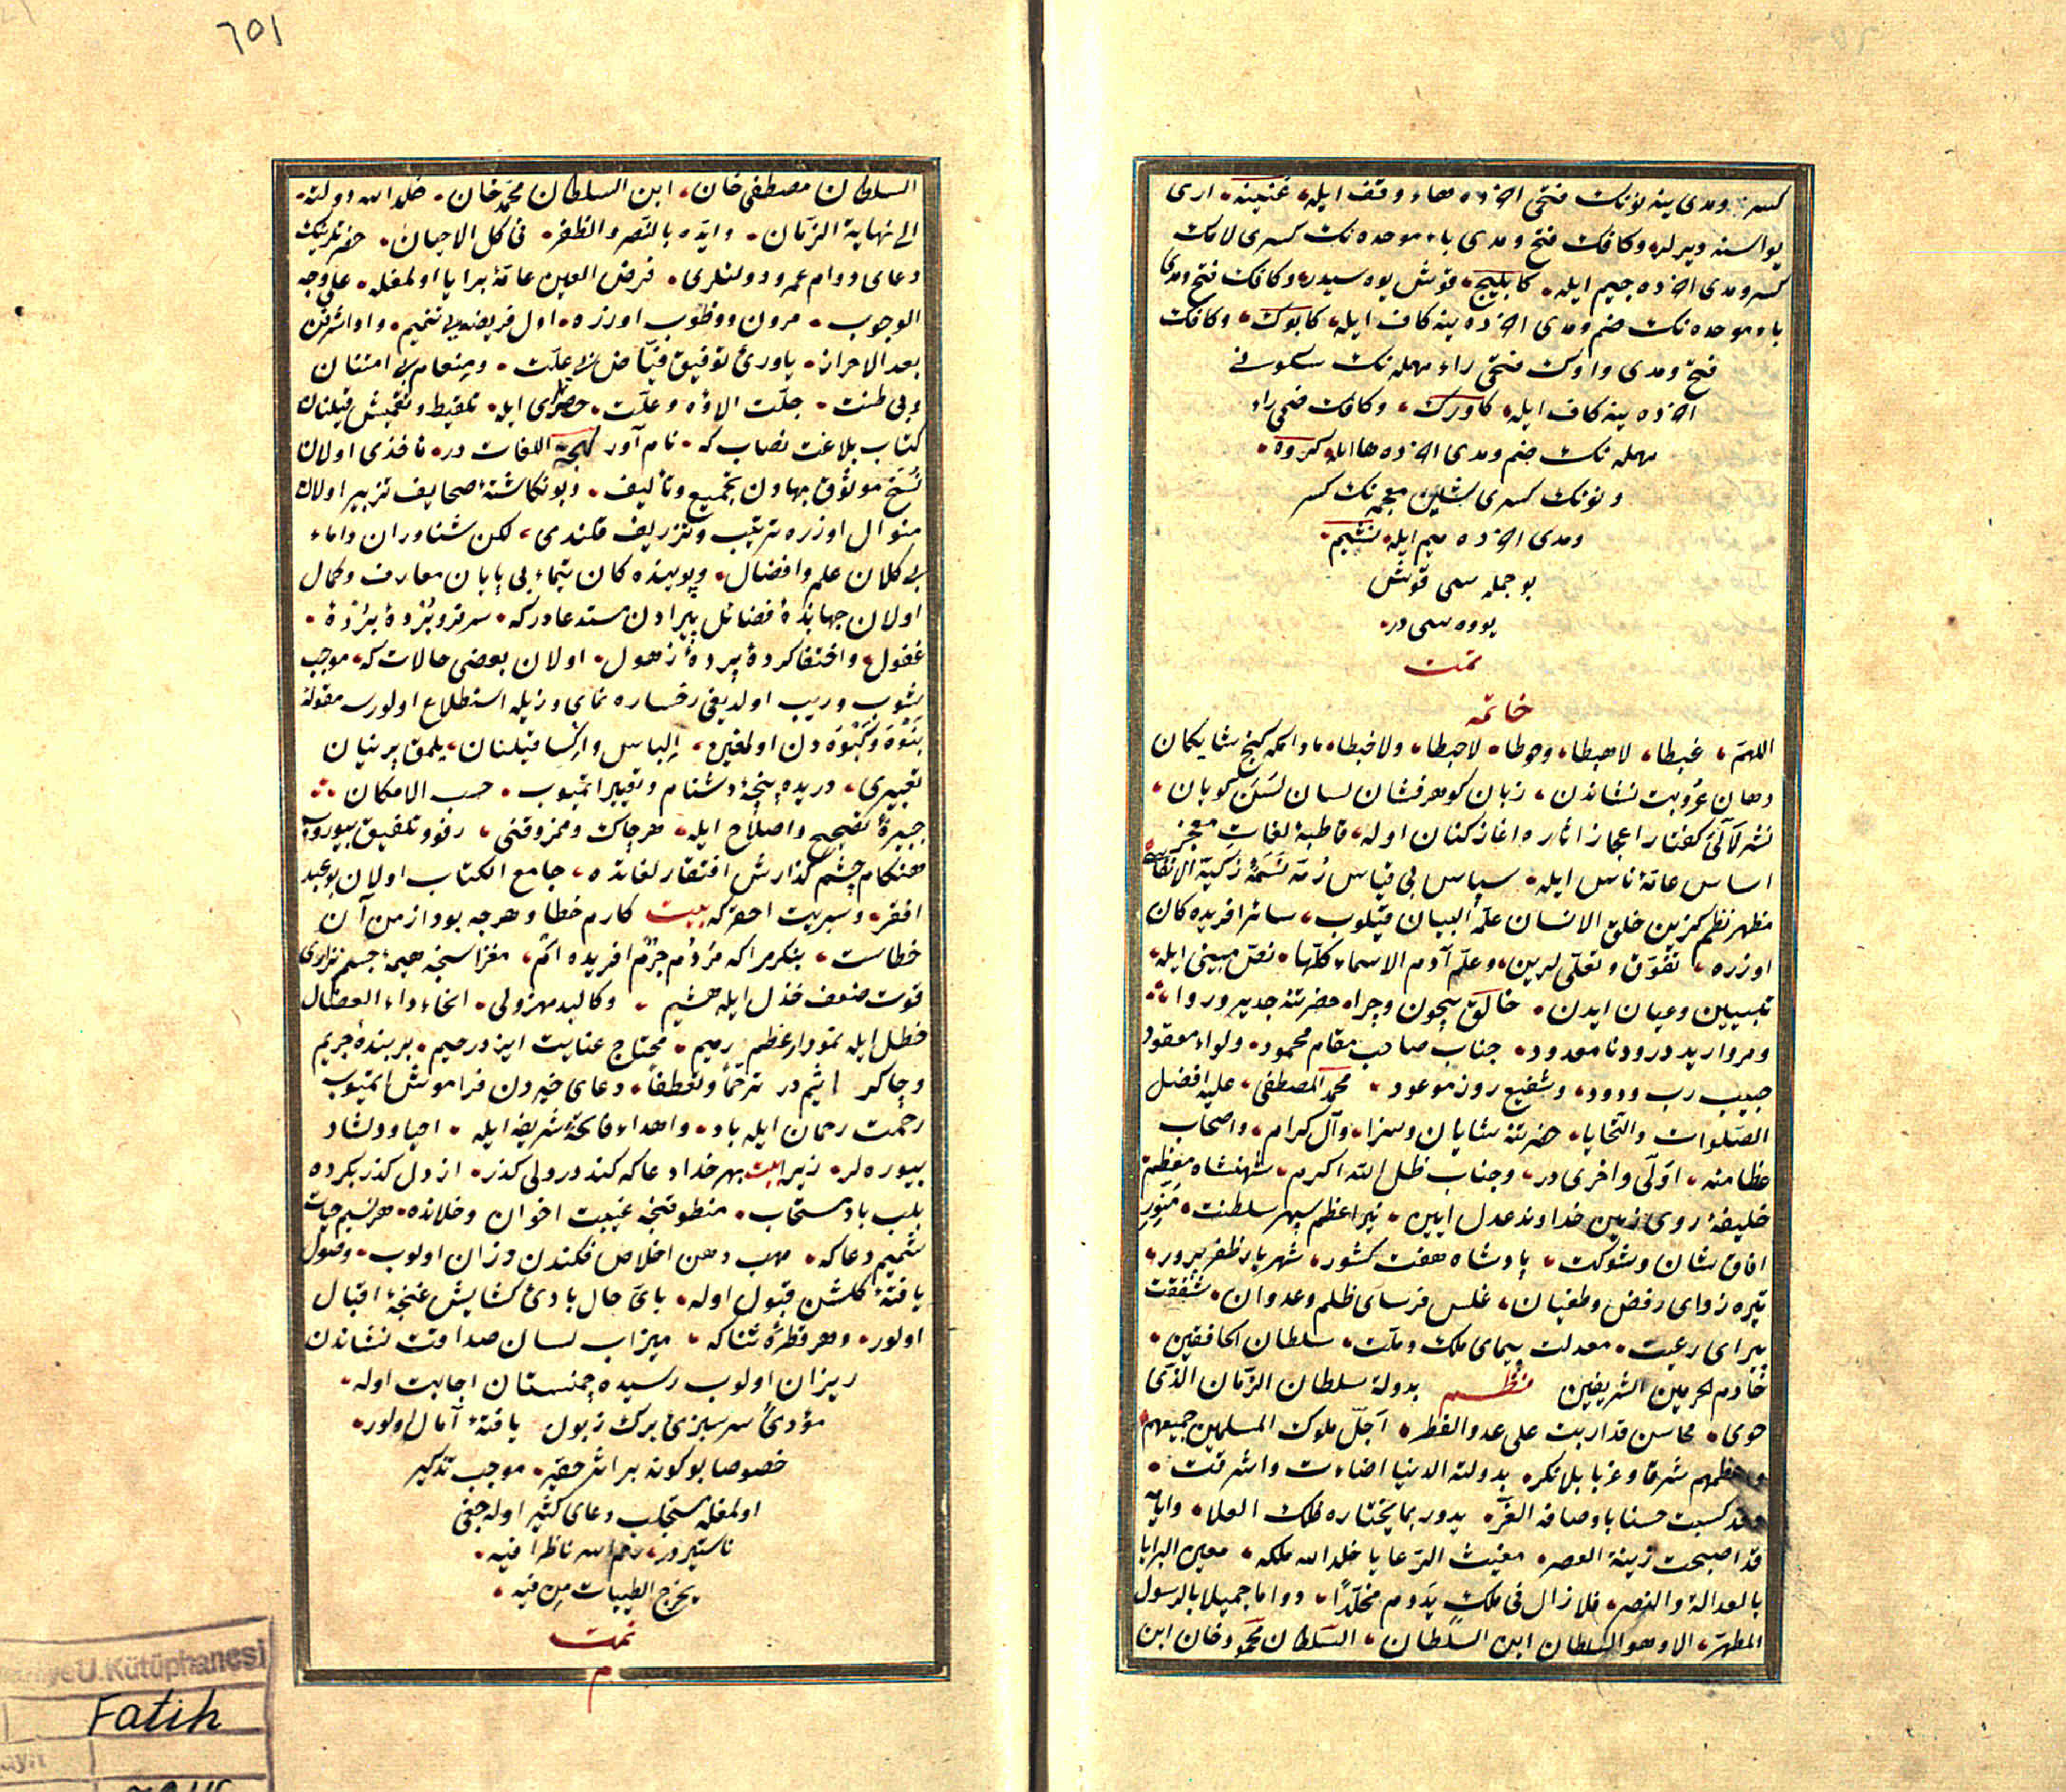 كسر ومدى ينه نونك فتحى اخرده هاء وقف ايله غنينه ارى
يواسنه ديرلر وكافك فتح ومدى باء موحده نك كسرى لامك
كسر ومدى اخرده جيم ايله كابليج قوش يوه سيدر وكافك فتح ومدى
باء موحده نك ضم ومدى اخرده ينه كاف ايله كابوك وكافك
فتح ومدى واوك فتحى راء مهمله نك سكونى
اخرده ينه كاف ايله كاورك وكافك ضمى راء
مهمله نك ضم ومدى اخرده ها ايله كروه
ونونك كسرى شين معجمه نك كسر
ومدى اخرده ميم ايله نشيم
بو جمله سى قوش
يووه سى در
تمت
خاتمه
اللهم غبطا لا هبطا وحوطا لا حبطا ولا خبطا مادامكه كنج شايكان
دهان عذوبت نشاندن زبان كوهرفشان لسان لسن كويان
نشر لآلئ كفتار اعجاز اثاره اغاز كنان اوله قاطبة لغات معجز
اساس عامۀ ناس ايله سپاس بى قياس زكية الانفاس
مظهر نظم كزين خلق الانسان علمه البيان قيلوب سائر افريده كان
اوزره تفوق وتعلى لرين وعلم آدم الاسماء كلها نص مبينى ايله
تبيين وعيان ايدن خالق بيچون وچرا حضرتنه جدير وروا
ومرواريد درود نامعدود جناب صاحب مقام محمود ولواء معقود
حبيب رب ودود وشفيع روز موعود محمد المصطفى عليه افضل
الصلوات والتحايا حضرتنه شايان وسزا وآل كرام واصحاب
عظامنه اولى واخرى در وجناب ظل الله اكرم شهنشاه معظم
خليفۀ روى زمين خداوند عدل ايين نير اعظم سپهر سلطنت منور
افاق شان وشوكت پادشاه هفت كشور شهريار ظفر پرور
تيره زداى رفض وطغيان غلس فرساى ظلم وعدوان شفقت
پيراى رعيت معدلت پيماى ملك وملت سلطان الخافقين
خادم الحرمين الشريفين نظم بدولة سلطان الزمان الذى
حوى محاسن قد اربت على عدد القطر اجل ملوك المسلمين جميعهم
واعظمهم شرقا وغربا بلا نكر بدولته الدنيا اضاءت واشرقت
وقد كسبت حسنا باوصافه الغر يدور بما يختاره فلك العلا وايامه
قد اصبحت زينة العصر مغيث الرعايا خلد الله ملكه معين البرايا
بالعدالة والنصر فلا زال فى ملك يدوم مخلدا دواما جميلا بالرسول
المطهر الا وهو السلطان ابن السلطان السلطان محمود خان ابن
٦٥١
السلطان مصطفى خان ابن السلطان محمد خان خلد الله دولته
الى نهاية الزمان وايده بالنصر والظفر فى كل الاحيان حضرتلرينك
دعاى دوام عمر ودولتلرى فرض العين عامۀ برايا اولمغله على وجه
الوجوب مرون ووظوب اوزره اول فريضه يى تتميم وادائدن
بعد الاحراز ياورئ توفيق فياض بى علت ومنعام بى امتنان
وبى ظنت جلت الاؤه وعلت حضرتى ايله تلقيط وتقميش قيلنان
كتاب بلاغت نصاب كه نام آور لهجة اللغات در مأخذى اولان
نسخ موثوق بهادن تجميع وتأليف وبو نكاشتۀ صحايف تزبير اولان
منوال اوزره ترتيب وتزريف قلندى لكن شناوران داماء
بى كلان علم وافضال وپوينده كان تيماء بى پايان معارف وكمال
اولان جهابذۀ فضائل پيرادن مستدعادر كه سر فرو بردۀ
غفول واختفا كردۀ پردۀ زهول اولان بعضى حالات كه موجب
شوب وريب اولديغى رخساره نماى وزيله استطلاع اولورسه مقوله
نبوه وكبوه دن اولمغين الباس واكسا قيلنان يلمق پرنيان
تعبيرى دريده پنجۀ دشنام وتعيير ايتميوب حسب الامكان
جبيرۀ تصحيح واصلاح ايله هر چاك وممزوقنى رفو وتلفيق بيوروب
هنكام چشم كذارش افتقار لغاتده جامع الكتاب اولان بو عبد
افقر وسپريت احقر كه بيت كارم خطا وهرچه بود از من آن
خطاست بنكر مرا كه مردم جرم افريده ام مغزاسنجه هيمۀ جسم نزارى
قوت ضعف خذل ايله هشيم وكالبد مهزولى انحاء داء العضال
خطل ايله نمودار عظم رميم محتاج عنايت ايزد رحيم بر بندۀ جريم
وچاكر اثيم در ترحما وتعطفا دعاى خيردن فراموش ايتميوب
رحمت رحمان ايله ياد واهداء فاتحۀ شريفه ايله احيا ودلشاد
بيوره لر زيرا بيت بهر خدا دعا كه كند در ولى كذر از دل كذر نكرده
بلب باد مستجاب منطوقنجه غيبت اخوان وخلانده هر نسيم حيات
شميم دعا كه مهب دهن اخلاص فكندن وزان اولوب وصول
يافتۀ كلشن قبول اوله باى حال بادئ كشايش غنچۀ اقبال
اولور وهر قطرۀ ثنا كه ميزاب لسان صداقت نشاندن
ريزان اولوب رسيده چمنستان اجابت اوله
مؤدئ سرسبزئ برك زبول يافتۀ آمال اولور
خصوصا بو كونه بر اثر حقير موجب تذكير
اولمغله مستجلب دعاى كثير اوله جغى
ناستيردر رحم الله ناظرا فيه
يخرج الطيبات من فيه
تمت
م
U.Kütüphanesi
Fatih